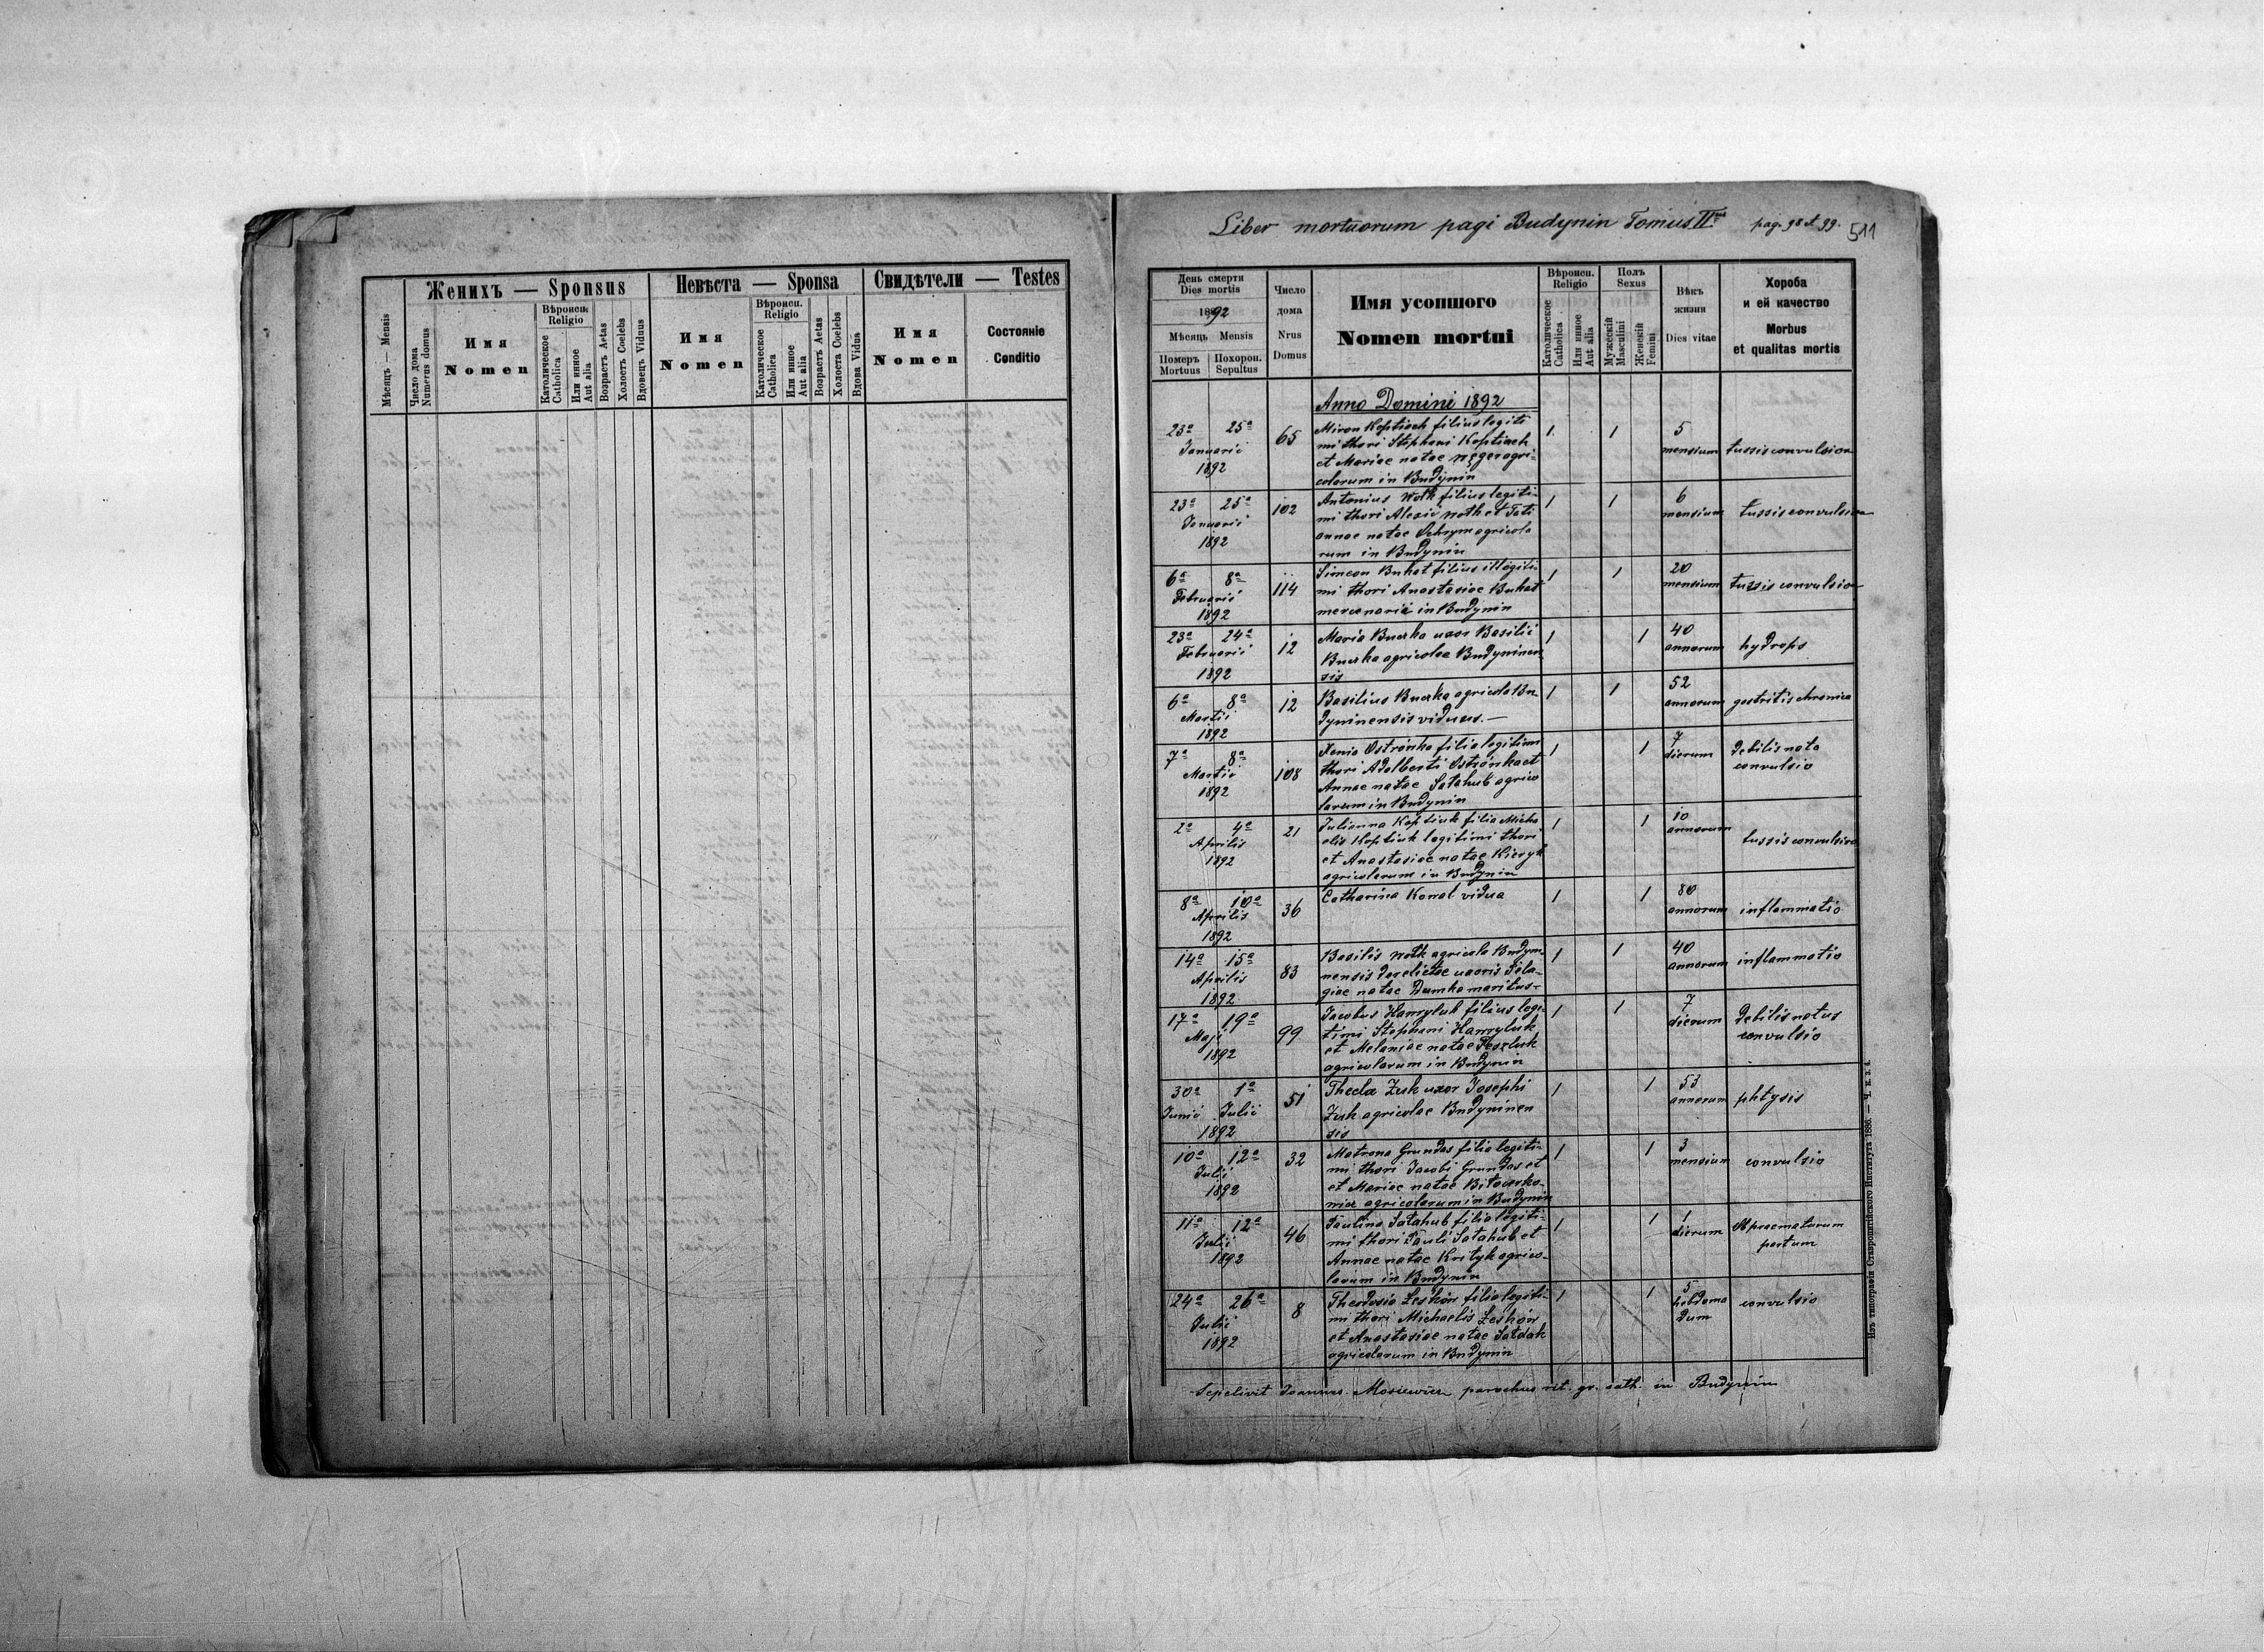 Женихъ — Sponsus
Невѣста — Sponsa
Свидѣтели — Testes
Мѣсяцъ — Mensis
Число дома
Numerus domus
Имя
Nomen
Вѣроисп.
Religio
Католическое
Catholica
Или инное
Aut alia
Возрастъ Aetas
Холостъ Coelebs
Вдовецъ Viduus
Имя
Nomen
Вѣроисп.
Religio
Католическое
Catholica
Или инное
Aut alia
Возрастъ Aetas
Холоста Coelebs
Вдова Vidua
Имя
Nomen
Состояніе
Conditio
Liber mortuorum pagi Budynin Tomus II pag. 98 et 99.
511
День смерти
Dies mortis
1892
Мѣсяцъ Mensis
Померъ
Mortuus
Похорон.
Sepultus
Число
дома
Nrus
Domus
Имя усопшого
Nomen mortui
Вѣроисп.
Religio
Католическое
Catholica
Или инное
Aut alia
Полъ
Sexus
Мужескій
Masculini
Женскій
Femini
Вѣкъ
жизни
Dies vitae
Хороба
и ей качество
Morbus
et qualitas mortis
Anno Domini 1892
23a 25a
Januarii
1892
65
Miron Koptiuch filius legiti
mi thori Stephani Koptiuch
et Mariae natae agri-
colarum in Budynin
1 1
5
mensium
tussis convulsiva
23a 25a
Januarii
1892
102
Antonius Wołk filius legiti-
mi thori Alexii Wołk et Tati
annae natae Ochrym agricola
rum in Budynin
1 1
6
mensium
tussis convulsiva
6a 8a
Februarii
1892
114
Simeon Buhat filius illegiti-
mi thori Anastasiae Buhat
mercenaria in Budynin
1 1
20
mensium
tussis convulsiva
23a 24a
Februarii
1892
12
Maria Buczka uxor Basilii
Buczka agricolae Budyninen
sis
1 1
40
annorum
hydrops
6a 8a
Martii
1892
12
Basilius Buczka agricola Bu
dyninensis viduus.—
1 1
52
annorum
gastritis chronica
7a 8a
Martii
1892
108
Xenia Ostrónka filia legitimi
thori Adalberti Ostrónka et
Annae natae Sałahub agrico
larum in Budynin
1 1
7
dierum
debilis nata
convulsio
2a 4a
Aprilis
1892
21
Julianna Koptiuk filia Micha
elis Koptiuk legitimi thori
et Anastasiae natae
agricolarum in Budynin
1 1
10
annorum
tussis convulsiva
8a 10a
Aprilis
1892
36
Catharina Kowal vidua
1 1
80
annorum
inflammatio
14a 15a
Aprilis
1892
83
Basilis Wołk agricola Budyni-
nensis derelictae uxoris Pela-
giae natae Dumka maritus-
1 1
40
annorum
inflammatio
17a 19a
Maji
1892
99
Jacobus Hawryluk filius legi-
timi Stephani Hawryluk
et Melaniae natae
agricolarum in Budynin
1 1
7
dierum
debilis natus
convulsio
30a 1a
Junii Julii
1892
51
Thecla Żuk uxor Josephi
Żuk agricolae Budyninen
sis
1 1
53
annorum
phtysis
10a 12a
Julii
1892
32
Matrona Grundas filia legiti-
mi thori Jacobi Grundas et
et Mariae natae
agricolarum in Budynin
1 1
3
mensium
convulsio
11a 12a
Julii
1892
46
Paulina Sałahub filia legiti-
mi thori Pauli Sałahub et
Annae natae Krityk agrico-
larum in Budynin
1 1
1
dierum
praematurum
partum
24a 26a
Julii
1892
8
Theodosia Lesków filia legiti-
mi thori Michaelis Lesków
et Anastasiae natae
agricolarum in Budynin
1 1
5
hebdoma
dum
convulsio
Sepelivit Joannes Mosiewicz parochus rit. gr. cath. in Budynin
Изъ типографіи Ставропигійского Института 1886. — Ч. п. з. 4.